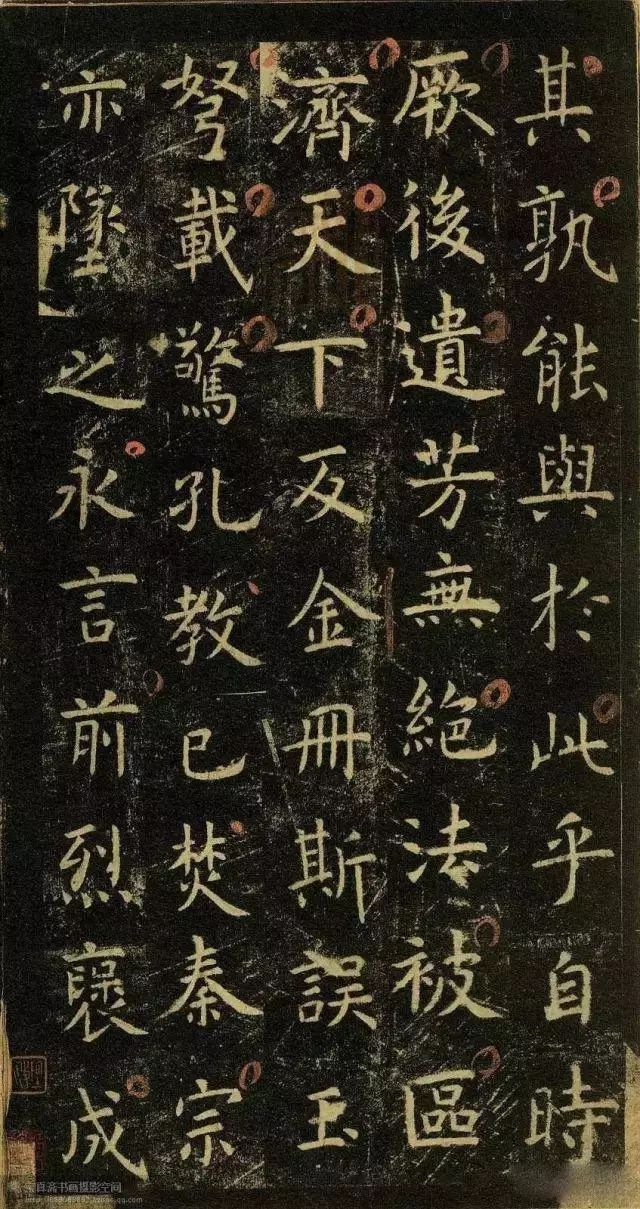 其孰能與於此乎自時
厥後遺芳無絕法被區
濟天下反金冊斯誤玉
弩載驚孔教已焚秦宗
亦墜之永言前烈襃成